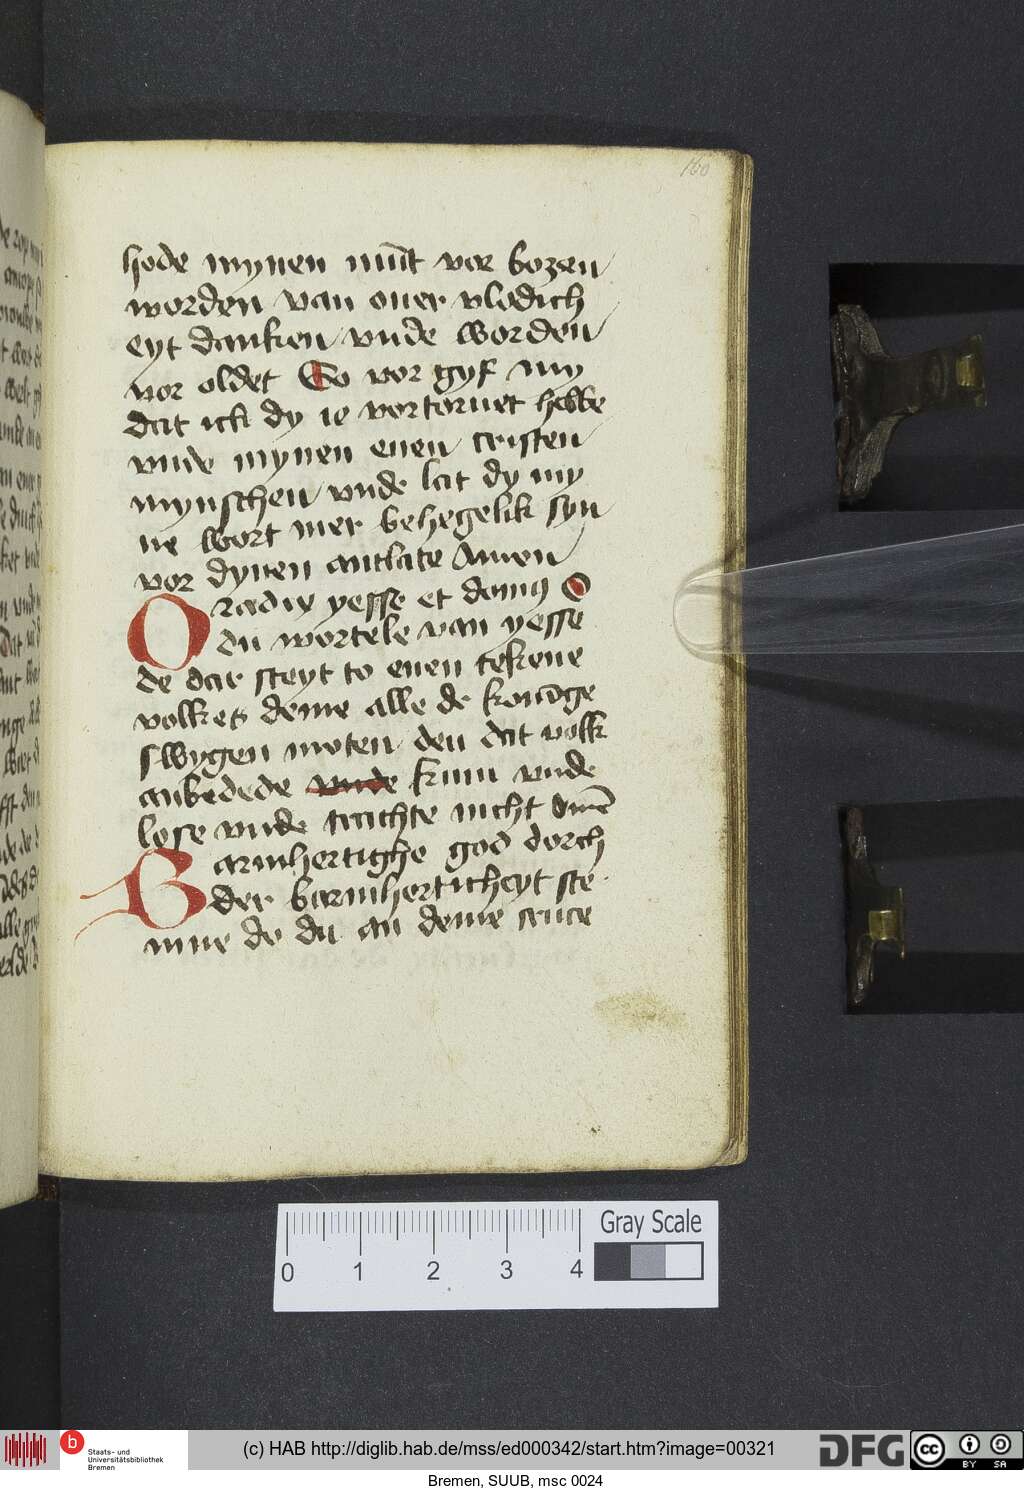 160
hode mynen mūt vor bozen
worden van ouer vlodich
eyt danken vnde worden
vor oldet So vor gyf my
dat ick dy ie vortornet hebbe
vnde mynen euen cristen
mynschen vnde lat dy my
ne wort mer behegelik syn
vor dynen antlate Amen
O radix yesse et domꝰ O
du wortele van yesse
de dar steyt to enen tekene
volkes deme alle de konīge
swygen moten den dat volk
anbedede vnde kum vnde
lose vnde trachte nicht
Barmhertighe god dorch
der barmherticheyt ste
mne do du an deme cruce
Gray Scale
0 1 2 3 4
b Staats- und
Universitätsbibliothek
Bremen
(c) HAB http://diglib.hab.de/mss/ed000342/start.htm?image=00321
DFG
cc BY SA
Bremen, SUUB, msc 0024